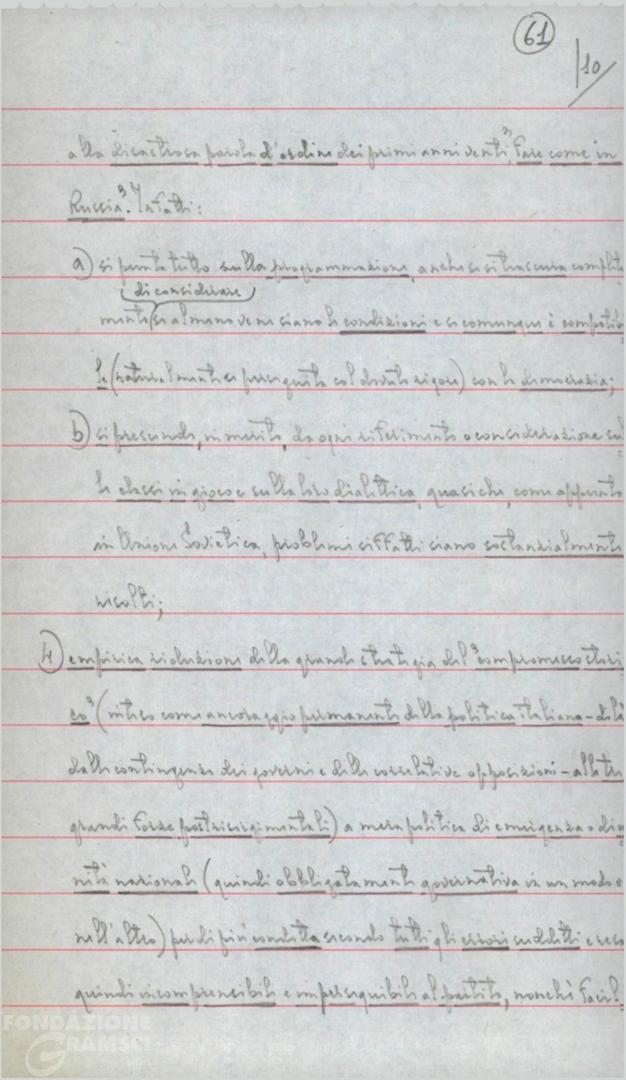 61
10
alla disastrosa parola d'ordine dei primi anni venti "Fare come in
Russia". Infatti:
a) si punta tutto sulla programmazione, anche se si trascura comple
di considerare
mente se almeno ve ne siano le condizioni e se comunque è compatibi
le (naturalmente se perseguita col dovuto rigore) con la democrazia;
b) si prescinde, in merito, da ogni riferimento o considerazione sul
le classi in gioco e sulla loro dialettica, quasi che, come appunto
in Unione Sovietica, problemi siffatti siano sostanzialmente
risolti;
4) empirica riduzione della grande strategia del "compromesso stori
co" (inteso come ancoraggio permanente della politica italiana - di là
dalle contingenze dei governi e delle correlative opposizioni - alle tre
grandi forze postrisorgimentali) a mera politica di emergenza o di u
nità nazionale (quindi obbligatamente governativa in un modo o
nell'altro) per di più condotta secondo tutti gli errori suddetti e reso
quindi incomprensibile e imperseguibile al partito, nonché facil
FONDAZIONE
GRAMSCI